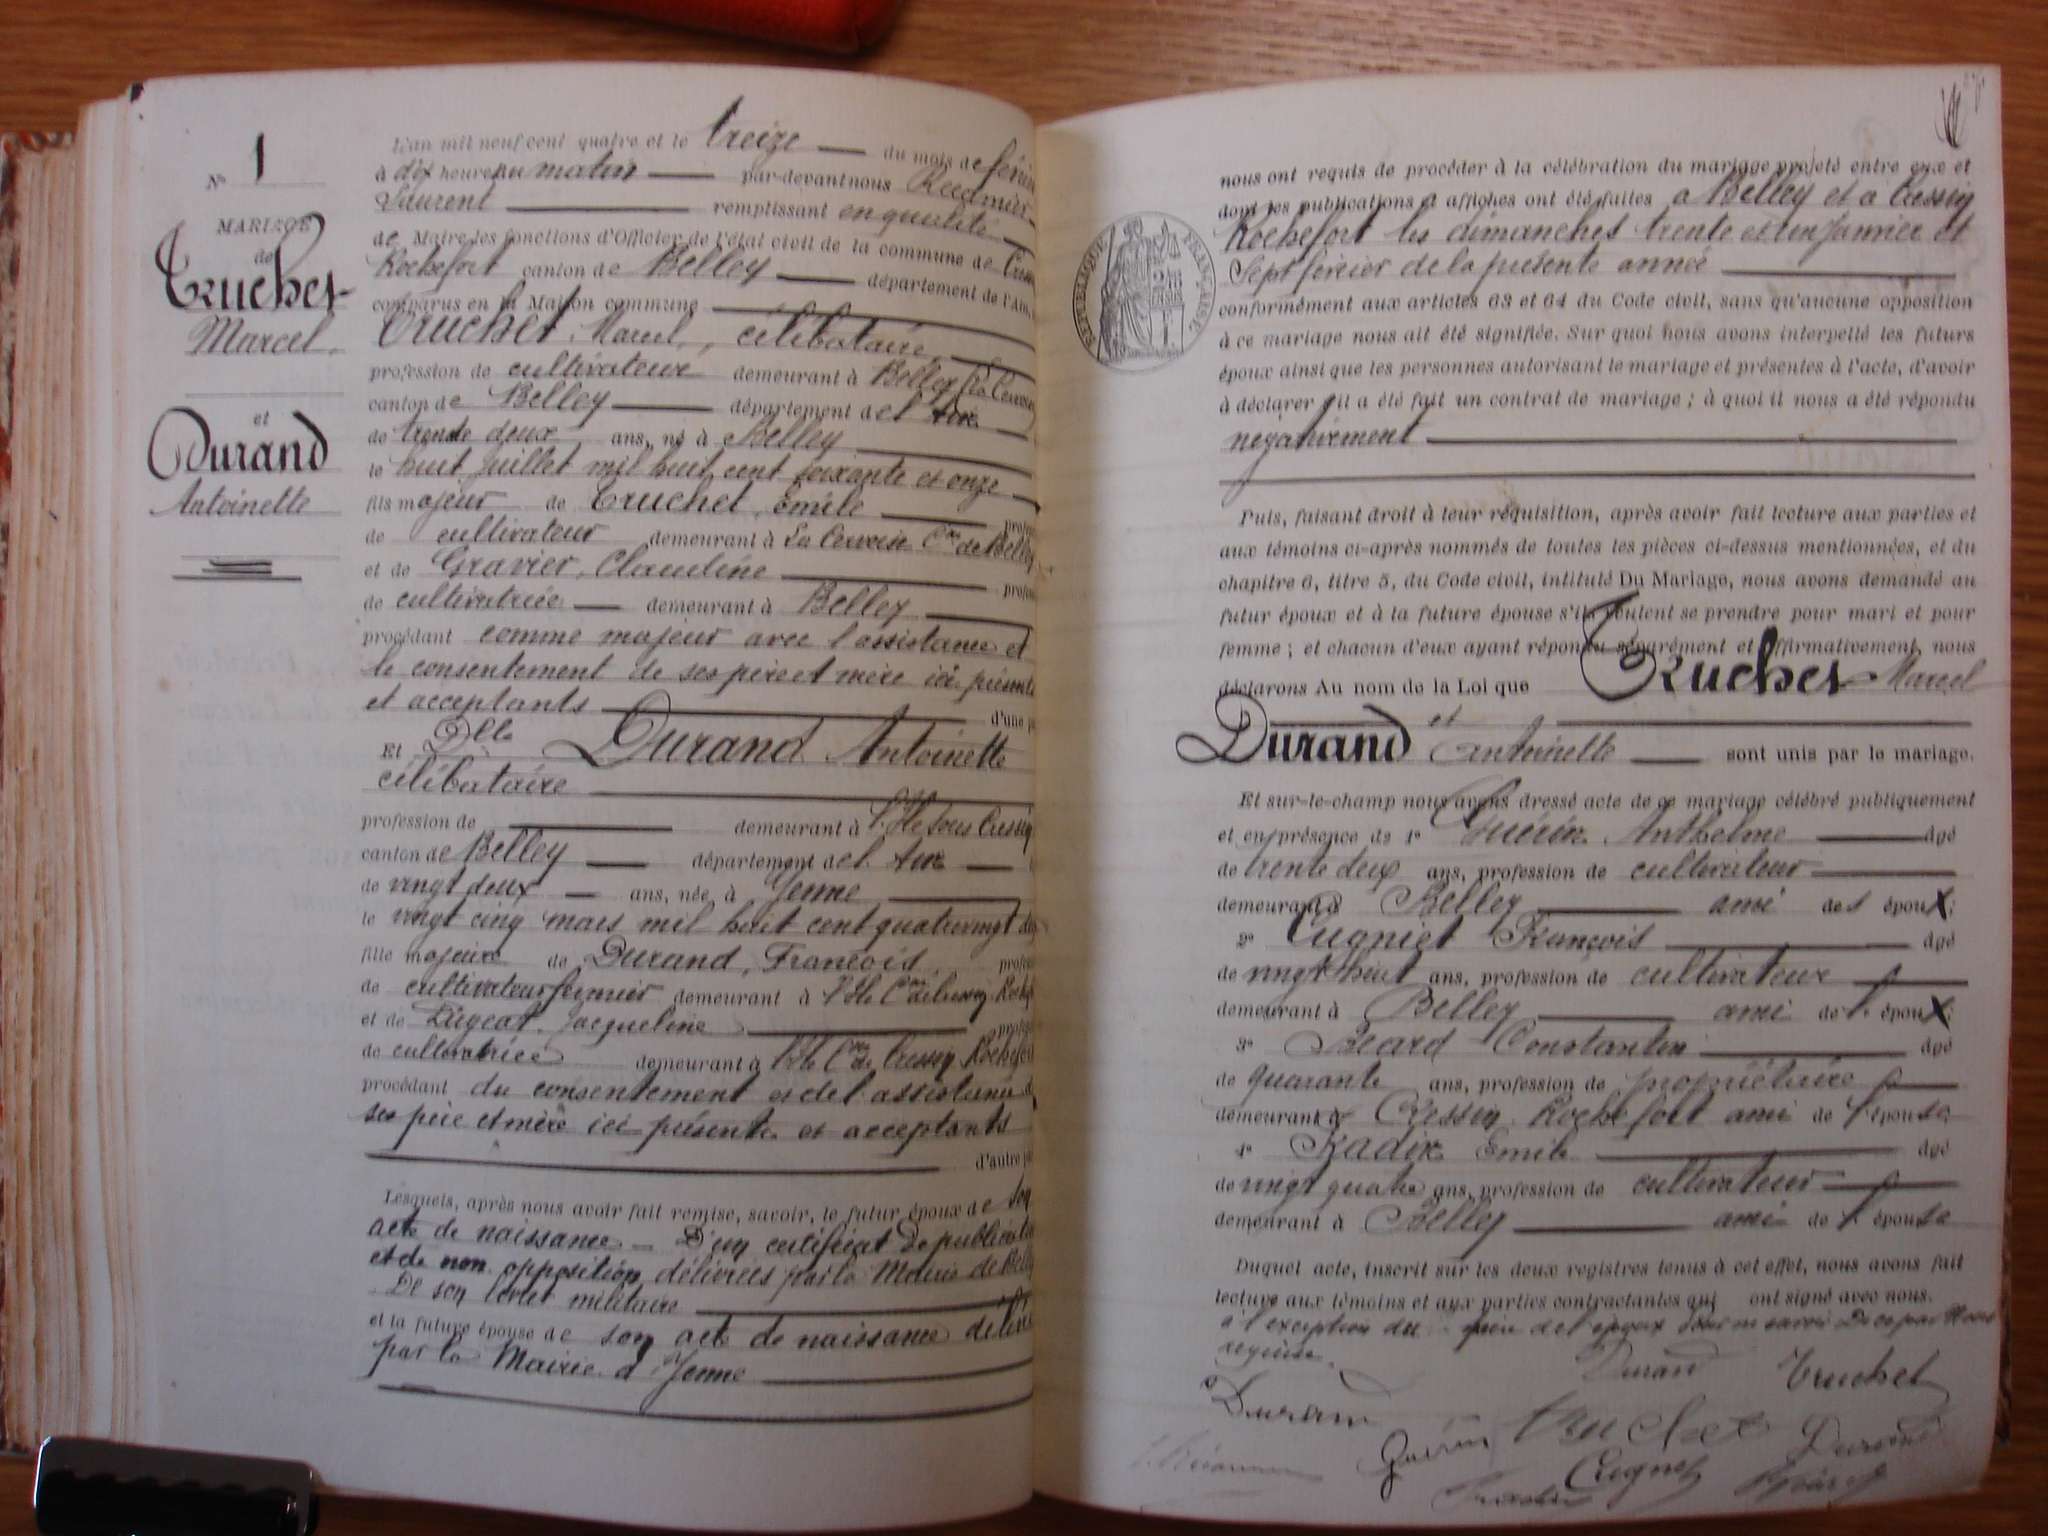 N° 1
MARIAGE
de
Truchet
Marcel.
et
Durand
Antoinette
L'an mil neuf cent quatre et le treize du mois de févrie
à dix heures du matin par-devant nous
Laurent remplissant en qualité
de Maire les fonctions d'Officier de l'état civil de la commune de Cress
Rochefort canton de Belley département de l'Ain,
comparus en la Maison commune
Truchet, Marcel, célibataire,
profession de cultivateur demeurant à Belley
canton de Belley département de l'Ain
de trente deux ans, né à Belley
le huit juillet mil huit cent soixante et onze
fils majeur de Truchet, Emile profes
de cultivateur demeurant à La Cervoise Cne de Belley
et de Gravier, Claudine profes
de cultivatrice demeurant à Belley
procédant comme majeur avec l'assistance et
le consentement de ses père et mère ici présents
et acceptants d'une p
Et Dlle Durand Antoinette
célibataire
profession de demeurant à l'Ile sous Cressin
canton de Belley département de l'Ain
de vingt deux ans, née à Yenne
le vingt cinq mars mil huit cent quatre vingt
fille majeure de Durand, François, profes
de cultivateur fermier demeurant à l'Ile Cne de Cressin Roche
et de Jacqueline profes
de cultivatrice demeurant à l'Ile Cne de Cressin Rochefort
procédant du consentement et de l'assistance d
ses père et mère ici présents et acceptants
d'autre p
Lesquels, après nous avoir fait remise, savoir, le futur époux de son
acte de naissance - D'un certificat de publication
et de non opposition délivrées par la Mairie de Belley
De son livret militaire
et la future épouse de son acte de naissance délivré
par la Mairie d'Yenne
nous ont requis de procéder à la célébration du mariage projeté entre eux et
dont les publications et affiches ont été faites à Belley et à Cressin
Rochefort les dimanches trente et un Janvier et
Sept février de la présente année
conformément aux articles 63 et 64 du Code civil, sans qu'aucune opposition
à ce mariage nous ait été signifiée. Sur quoi nous avons interpellé les futurs
époux ainsi que les personnes autorisant le mariage et présentes à l'acte, d'avoir
à déclarer s'il a été fait un contrat de mariage ; à quoi il nous a été répondu
négativement
RÉPUBLIQUE FRANÇAISE.
Puis, faisant droit à leur réquisition, après avoir fait lecture aux parties et
aux témoins ci-après nommés de toutes les pièces ci-dessus mentionnées, et du
chapitre 6, titre 5, du Code civil, intitulé Du Mariage, nous avons demandé au
futur époux et à la future épouse s'ils veulent se prendre pour mari et pour
femme ; et chacun d'eux ayant répondu séparément et affirmativement, nous
déclarons Au nom de la Loi que Truchet Marcel
et
Durand Antoinette sont unis par le mariage.
Et sur-le-champ nous avons dressé acte de ce mariage célébré publiquement
et en présence de 1° Guérin Anthelme âgé
de trente deux ans, profession de cultivateur
demeurant à Belley ami des époux;
2° Cugniet François âgé
de vingt huit ans, profession de cultivateur
demeurant à Belley ami de l'époux;
3° Béard Constantin âgé
de quarante ans, profession de propriétaire
demeurant à Cressin Rochefort ami de l'épouse;
4° Radix Emile âgé
de vingt quatre ans, profession de cultivateur
demeurant à Belley ami de l'épouse
Duquel acte, inscrit sur les deux registres tenus à cet effet, nous avons fait
lecture aux témoins et aux parties contractantes qui ont signé avec nous.
à l'exception du père de l'époux pour ne savoir De ce par Nous
requise.
Durand Truchet
Durand
Guérin Truchet Durand
Cugniet